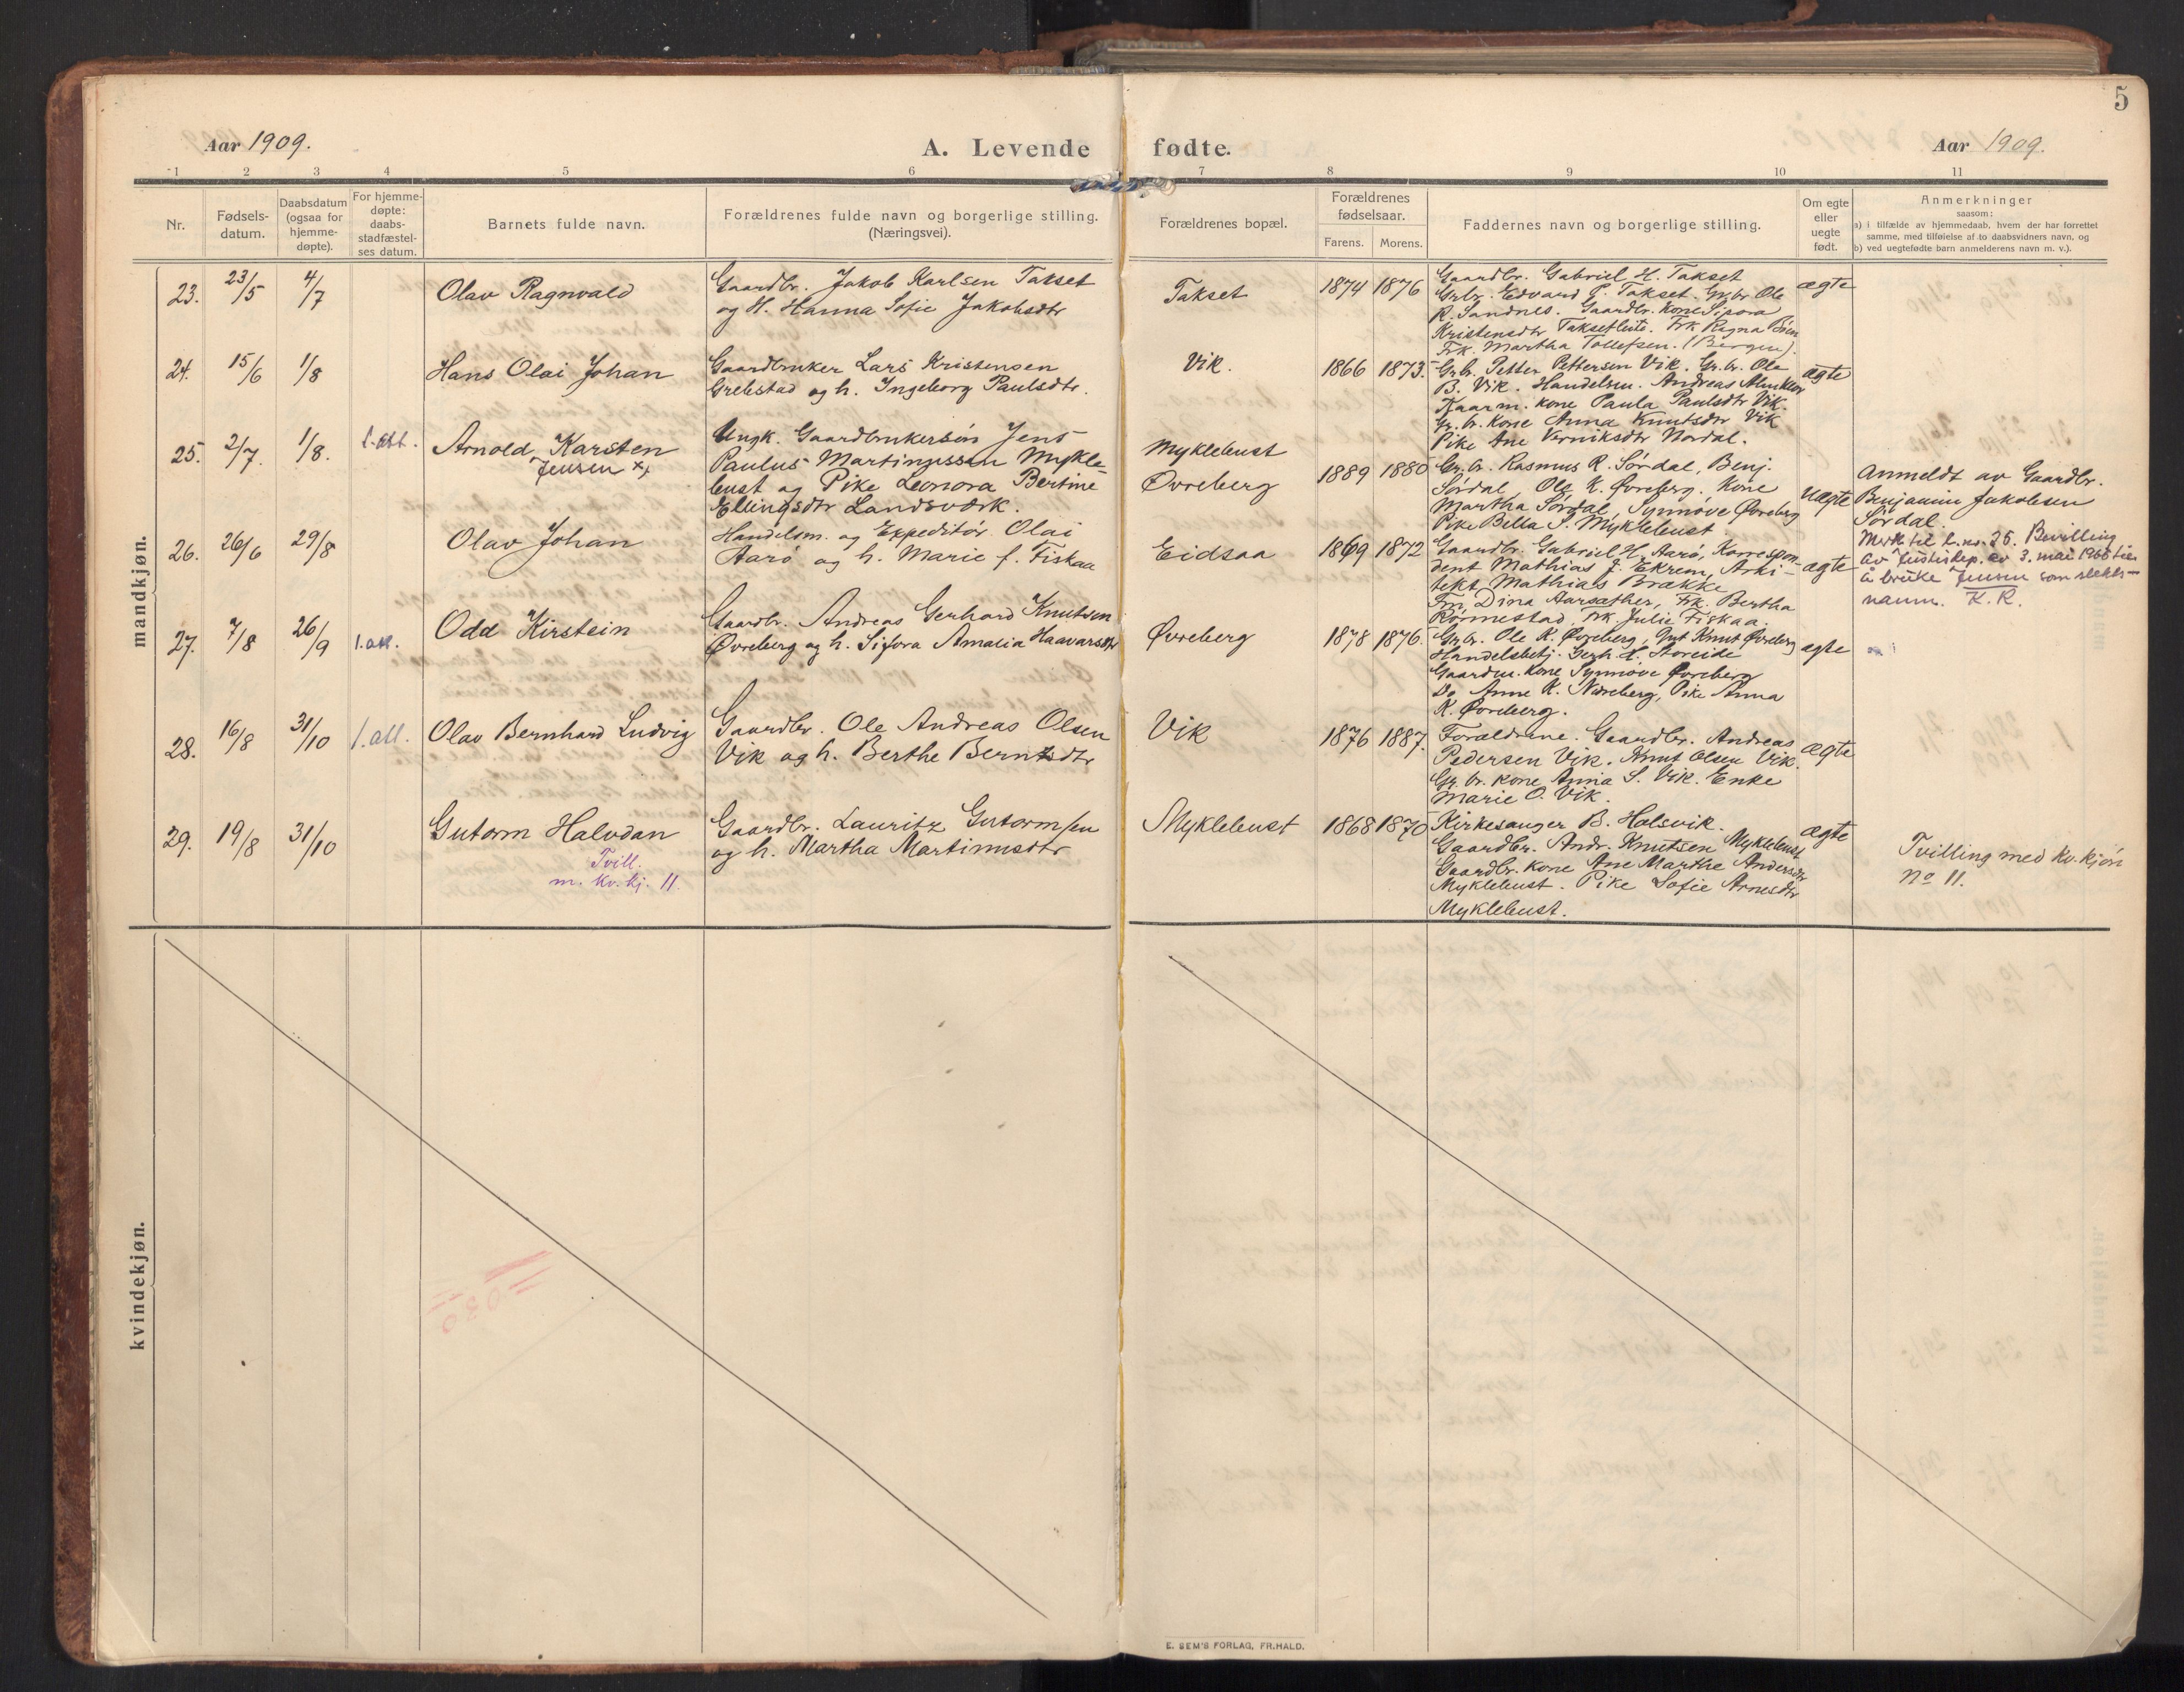 5
Aar 1909.
A. Levende fødte.
Aar 1909.
1 2 3 4 5 6 7 8 9 10 11
Nr.
Fødsels-
datum.
Daabsdatum
(ogsaa for
hjemme-
døpte).
For hjemme-
døpte:
daabs-
stadfæstel-
ses datum.
Barnets fulde navn.
Forældrenes fulde navn og borgerlige stilling.
(Næringsvei).
Forældrenes bopæl.
Forældrenes
fødselsaar.
Farens. Morens.
Faddernes navn og borgerlige stilling.
Om egte
eller
uegte
født.
Anmerkninger
saasom:
a) i tilfælde av hjemmedaab, hvem der har forrettet
samme, med tilføielse af to daabsvidners navn, og
b) ved uegtefødte barn anmelderens navn m. v.).
mandkjøn.
23. 23/5 4/7
Olav Ragnvald
Gaardbr. Jakob Karlsen Takset
og H. Hanna Sofie Jakobsdtr
Takset
1874 1876
Gaardbr. Gabriel H. Takset
Grbr. Edvard P. Takset. Gr.br. Ole
R. Sandnes. Gaardbr. Kone Sipora
Kristensdtr Taksetleite. Frk Ragna Brien
Frk. Martha Tollefsen. (Bergen).
ægte
24. 15/6 1/8
Hans Olai Johan
Gaardbruker Lars Kristensen
Grebstad og h. Ingeborg Paulsdtr.
Vik.
1866 1873.
Gr.b. Petter Pettersen Vik. Gr.br. Ole
B. Vik. Handelsm. Andreas Almklov
Kaarm. kone Paula Paulsdtr Vik.
Gr. br. Kone Anna Knutsdtr Vik
Pike Ane Verniksdtr Nordal.
ægte
25. 2/7. 1/8. 1. att.
Arnold Karsten
Jensen x)
Ungk. Gaardbrukersøn Jens
Paulus Martinussen Mykle-
bust og Pike Leonora Bertine
Ellingsdtr Landsværk.
Myklebust
Øvreberg
1889 1880
Gr. br. Rasmus R. Sørdal, Benj.
Sørdal, Ole K. Øvreberg. Kone
Martha Sørdal, Synnøve Øvreberg
Pike Bella S. Myklebust.
Uægte
Anmeldt av Gaardbr.
Benjamin Jakobsen
Sørdal.
Merk til l. nr. 25. Bevilling
av Justisdep. av 3. mai 1966 til
å bruke Jensen som slekts-
navn. K. R.
26. 26/6 29/8
Olav Johan
Handelsm. og Expeditør Olai
Aarø og h. Marie f. Fiskaa
Eidsaa
1869 1872
Gaardbr. Gabriel H. Aarø, Korrespon-
dent Mathias J. Ekrem, Arki-
tekt Mathias Brække
Fru Dina Aarsæther, Frk. Bertha
Rørmestad, Frk. Julie Fiskaa.
ægte
27. 7/8 26/9 1. att.
Odd Kirstein
Gaardbr. Andreas Gerhard Knutsen
Øvreberg og h. Sifora Amalia Haavarsdtr
Øvreberg
1878 1876.
Gr.br. Ole K. Øvreberg, Gut Knut Øvreberg
Handelsbetj. Gerh. H. Storeide
Gaardm. Kone Synnøve Øvreberg
Do Anne K. Nøreberg, Pike Anna
K. Øvreberg.
ægte
28. 16/8 31/10 1. att.
Olav Bernhard Ludvig
Gaardbr. Ole Andreas Olsen
Vik og h. Berthe Berntsdtr
Vik
1876 1887.
Forældrene. Gaardbr. Andreas
Pedersen Vik. Knut Olsen Vik.
Gr. br. kone Anna S. Vik. Enke
Marie O. Vik.
ægte
29. 19/8 31/10
Gutorm Halvdan
Tvill.
m. kv. kj. 11.
Gaardbr. Lauritz Gutormsen
og h. Martha Martinusdtr
Myklebust
1868 1870
Kirkesanger B. Holsvik.
Gaardbr. Andr. Knutsen Myklebust
Gaardbr. Kone Ane Marthe Andersdtr
Myklebust. Pike Sofie Arnesdtr
Myklebust.
ægte
Tvilling med kv. kjøn
No 11.
kvindekjøn.
E. SEM'S FORLAG, FR.HALD.